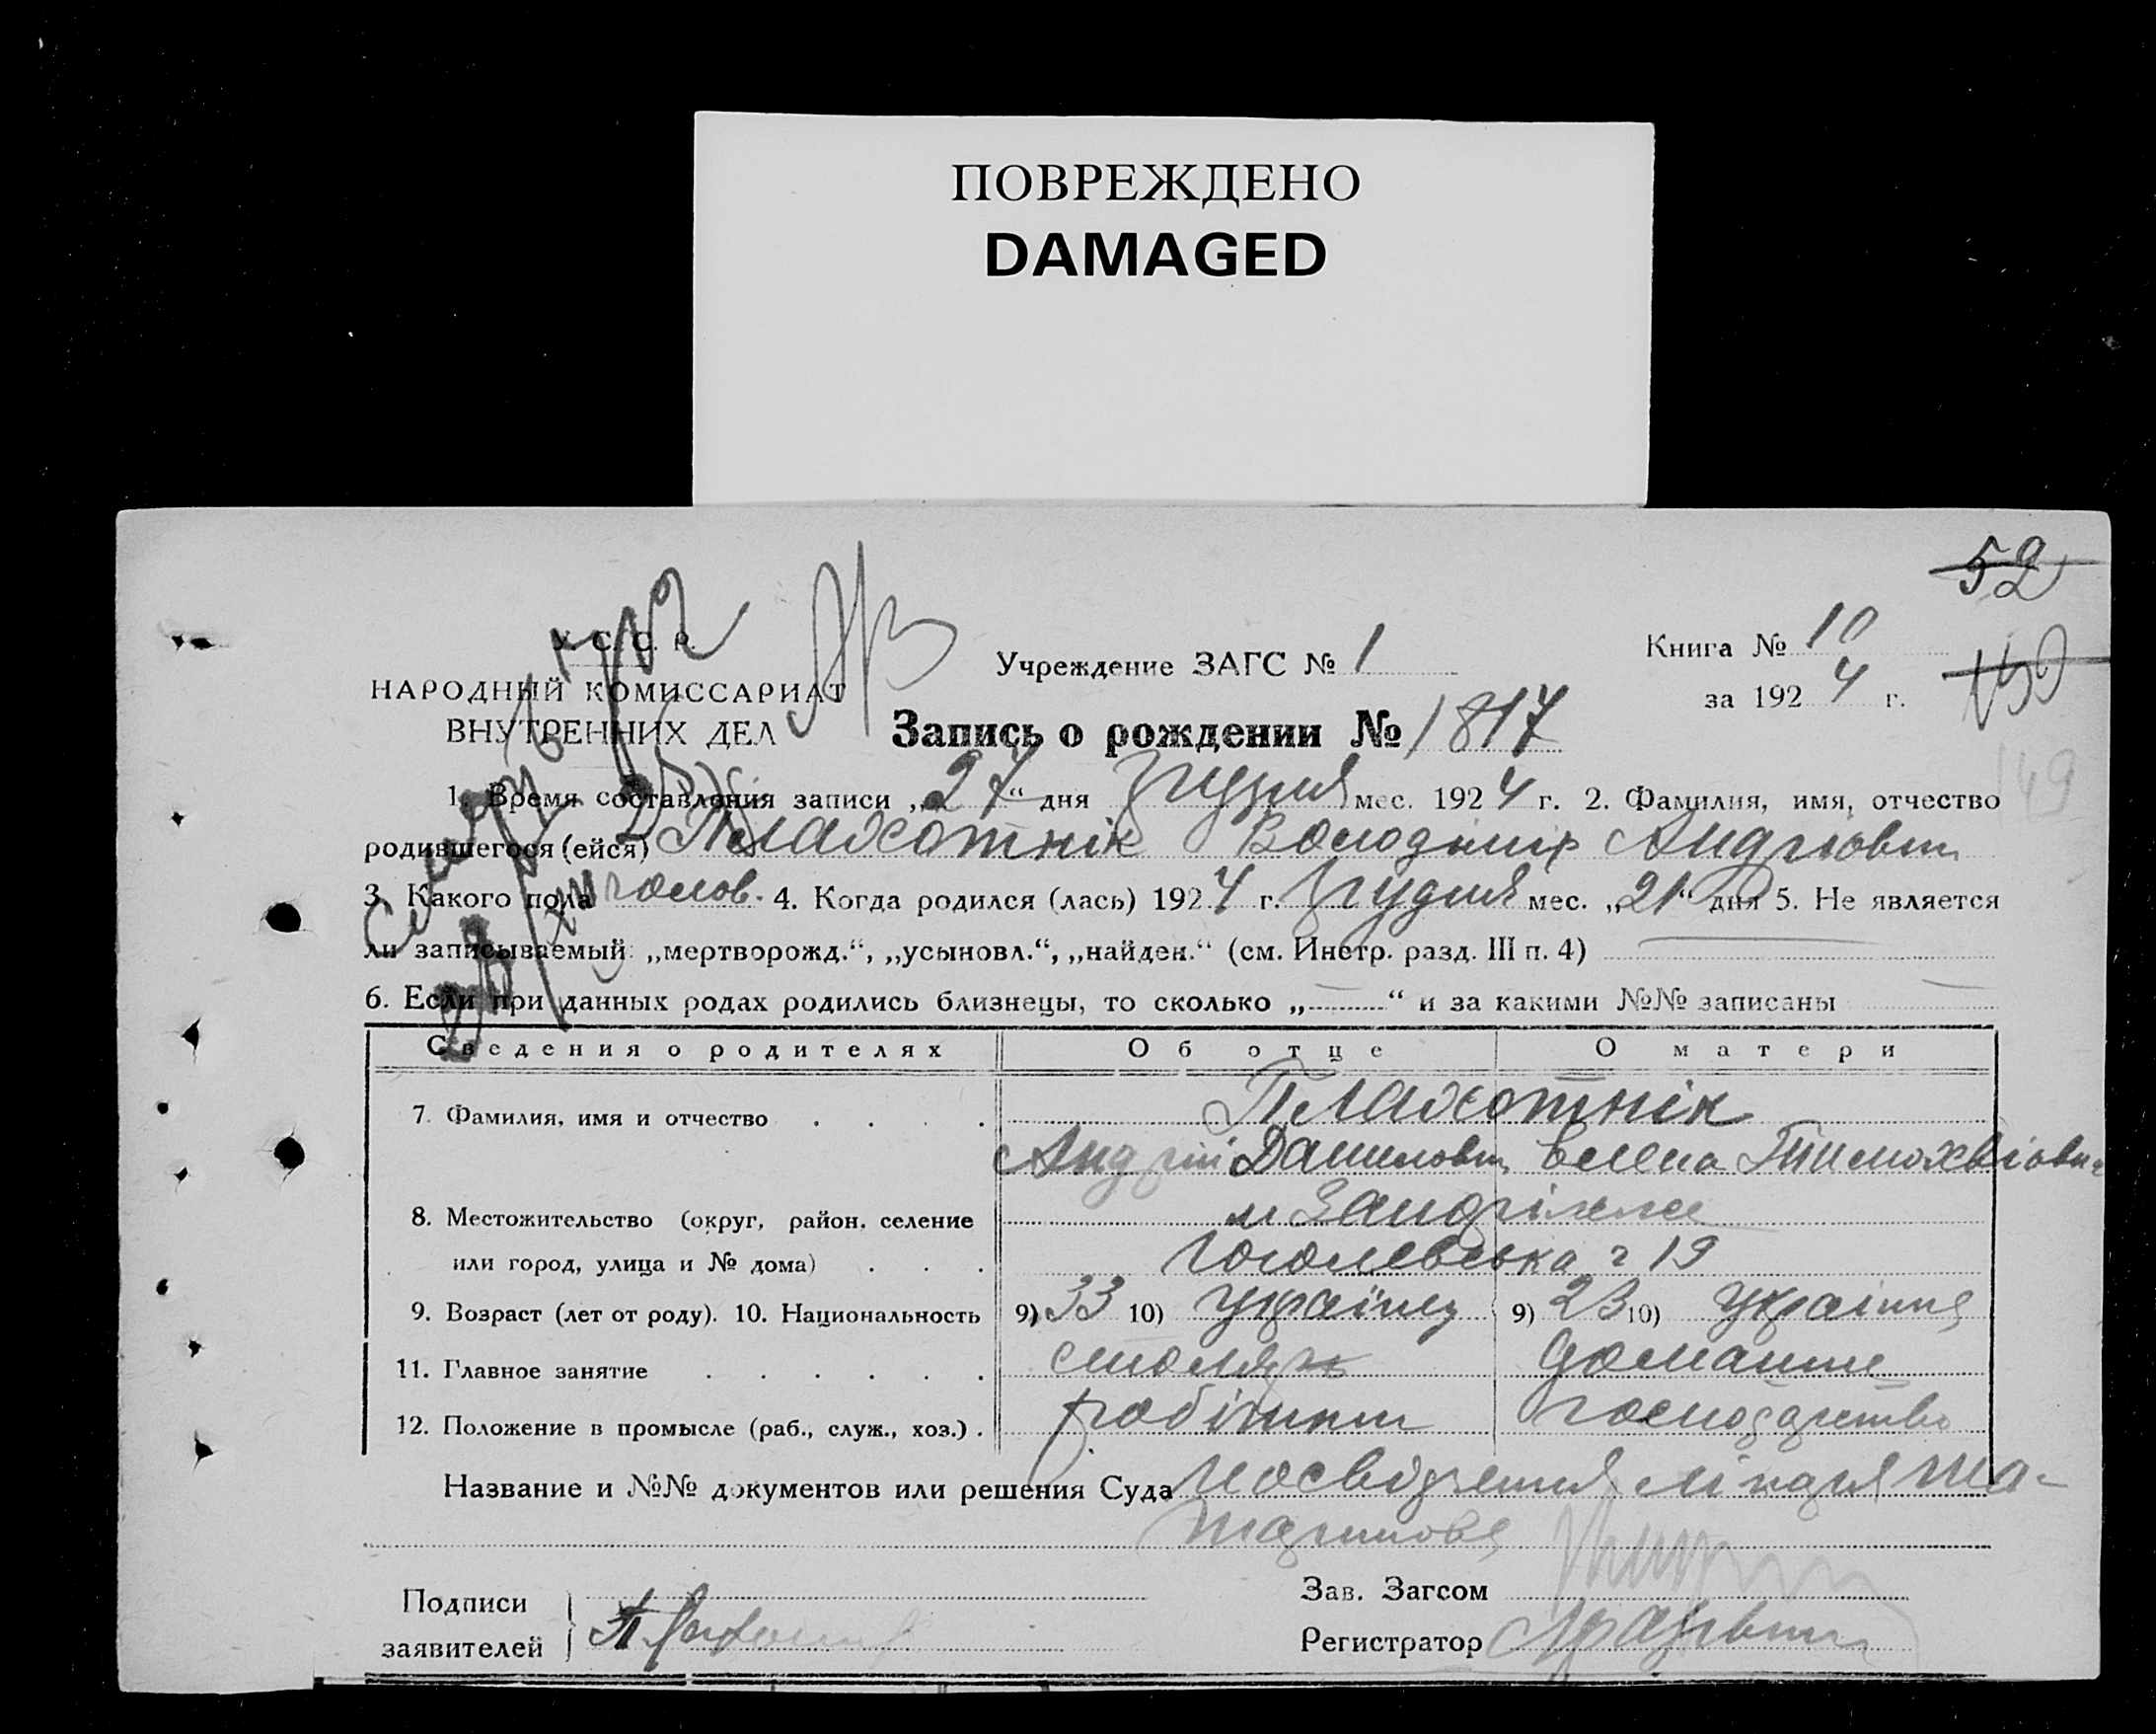 ПОВРЕЖДЕНО
DAMAGED
52
У. С. С. Р.
НАРОДНЫЙ КОМИССАРИАТ
ВНУТРЕННИХ ДЕЛ
Учреждение ЗАГС № 1
Книга № 10
за 1924 г.
150
149
Запись о рождении № 1817
1. Время составления записи „27“ дня грудня мес. 1924 г. 2. Фамилия, имя, отчество
родившегося (ейся) Плахотнік Володімір Андріович
3. Какого пола чолов. 4. Когда родился (лась) 1924 г. грудня мес. „21“ дня 5. Не является
ли записываемый „мертворожд.“, „усыновл.“, „найден.“ (см. Инстр. разд. III п. 4)
6. Если при данных родах родились близнецы, то сколько „ “ и за какими №№ записаны
Сведения о родителях Об отце О матери
7. Фамилия, имя и отчество Плахотнік
Андрій Данилович Елена Тимохвіовна
8. Местожительство (округ, район, селение м Запоріжже
или город, улица и № дома) Гоголевська ч 19
9. Возраст (лет от роду). 10. Национальность 9) 33 10) Українец 9) 23 10) Українка
11. Главное занятие столяр домашне
12. Положение в промысле (раб., служ., хоз.) робітник господарство
Название и №№ документов или решения Суда посвідчення лікаря
Подписи
заявителей
Зав. Загсом
Регистратор